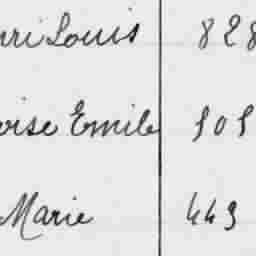 nri Louis 828
oise Emile 505
Marie 449